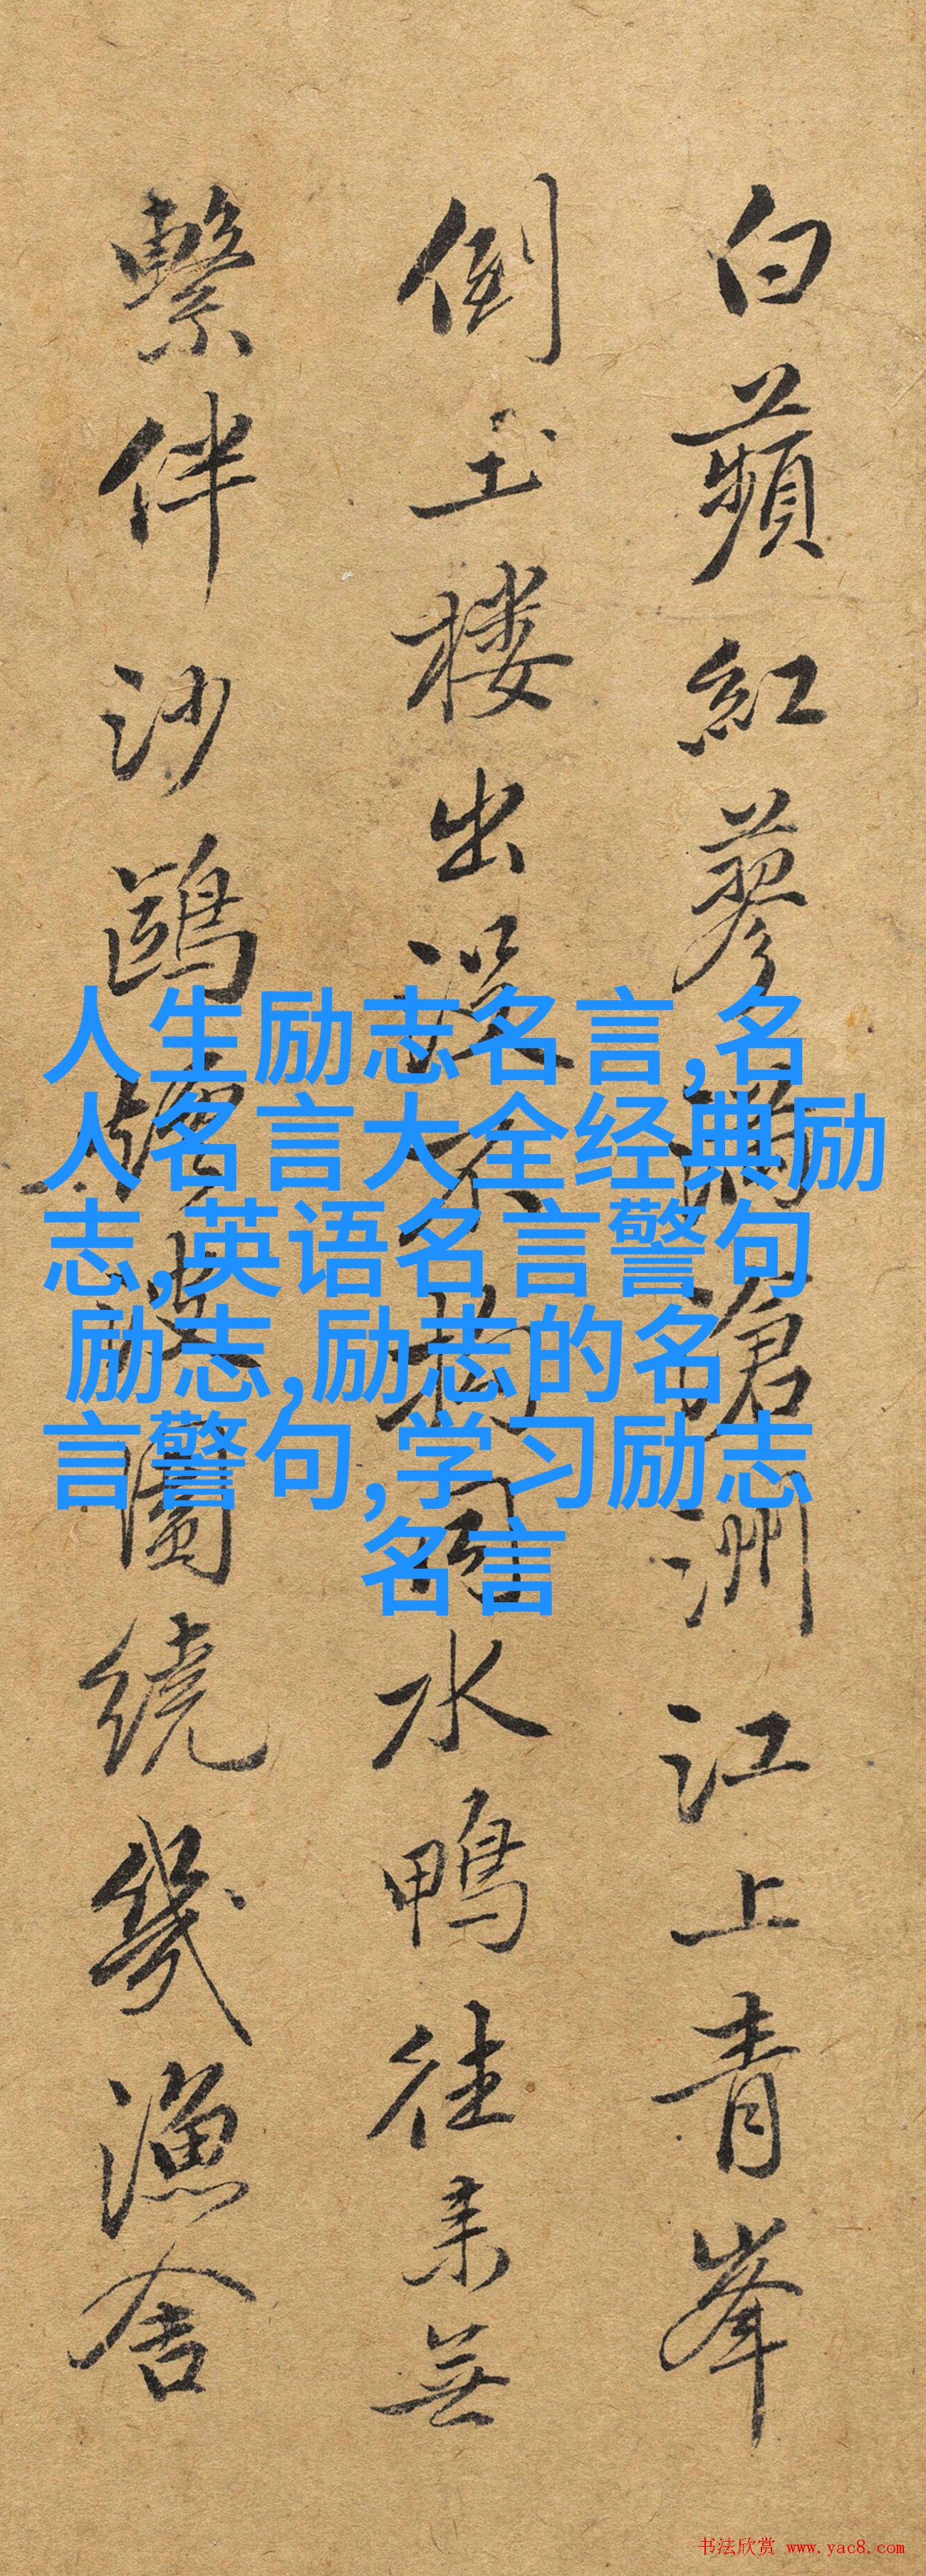 白蘋紅蓼滿滄洲江上青峯
倒玉楼出没不拘水鴨往来無
繫伴沙鷗波圍繞幾漁舍
人生励志名言,名
人名言大全经典励
志,英语名言警句
励志,励志的名
言警句,学习励志
名言
书法欣赏 www.yac8.com